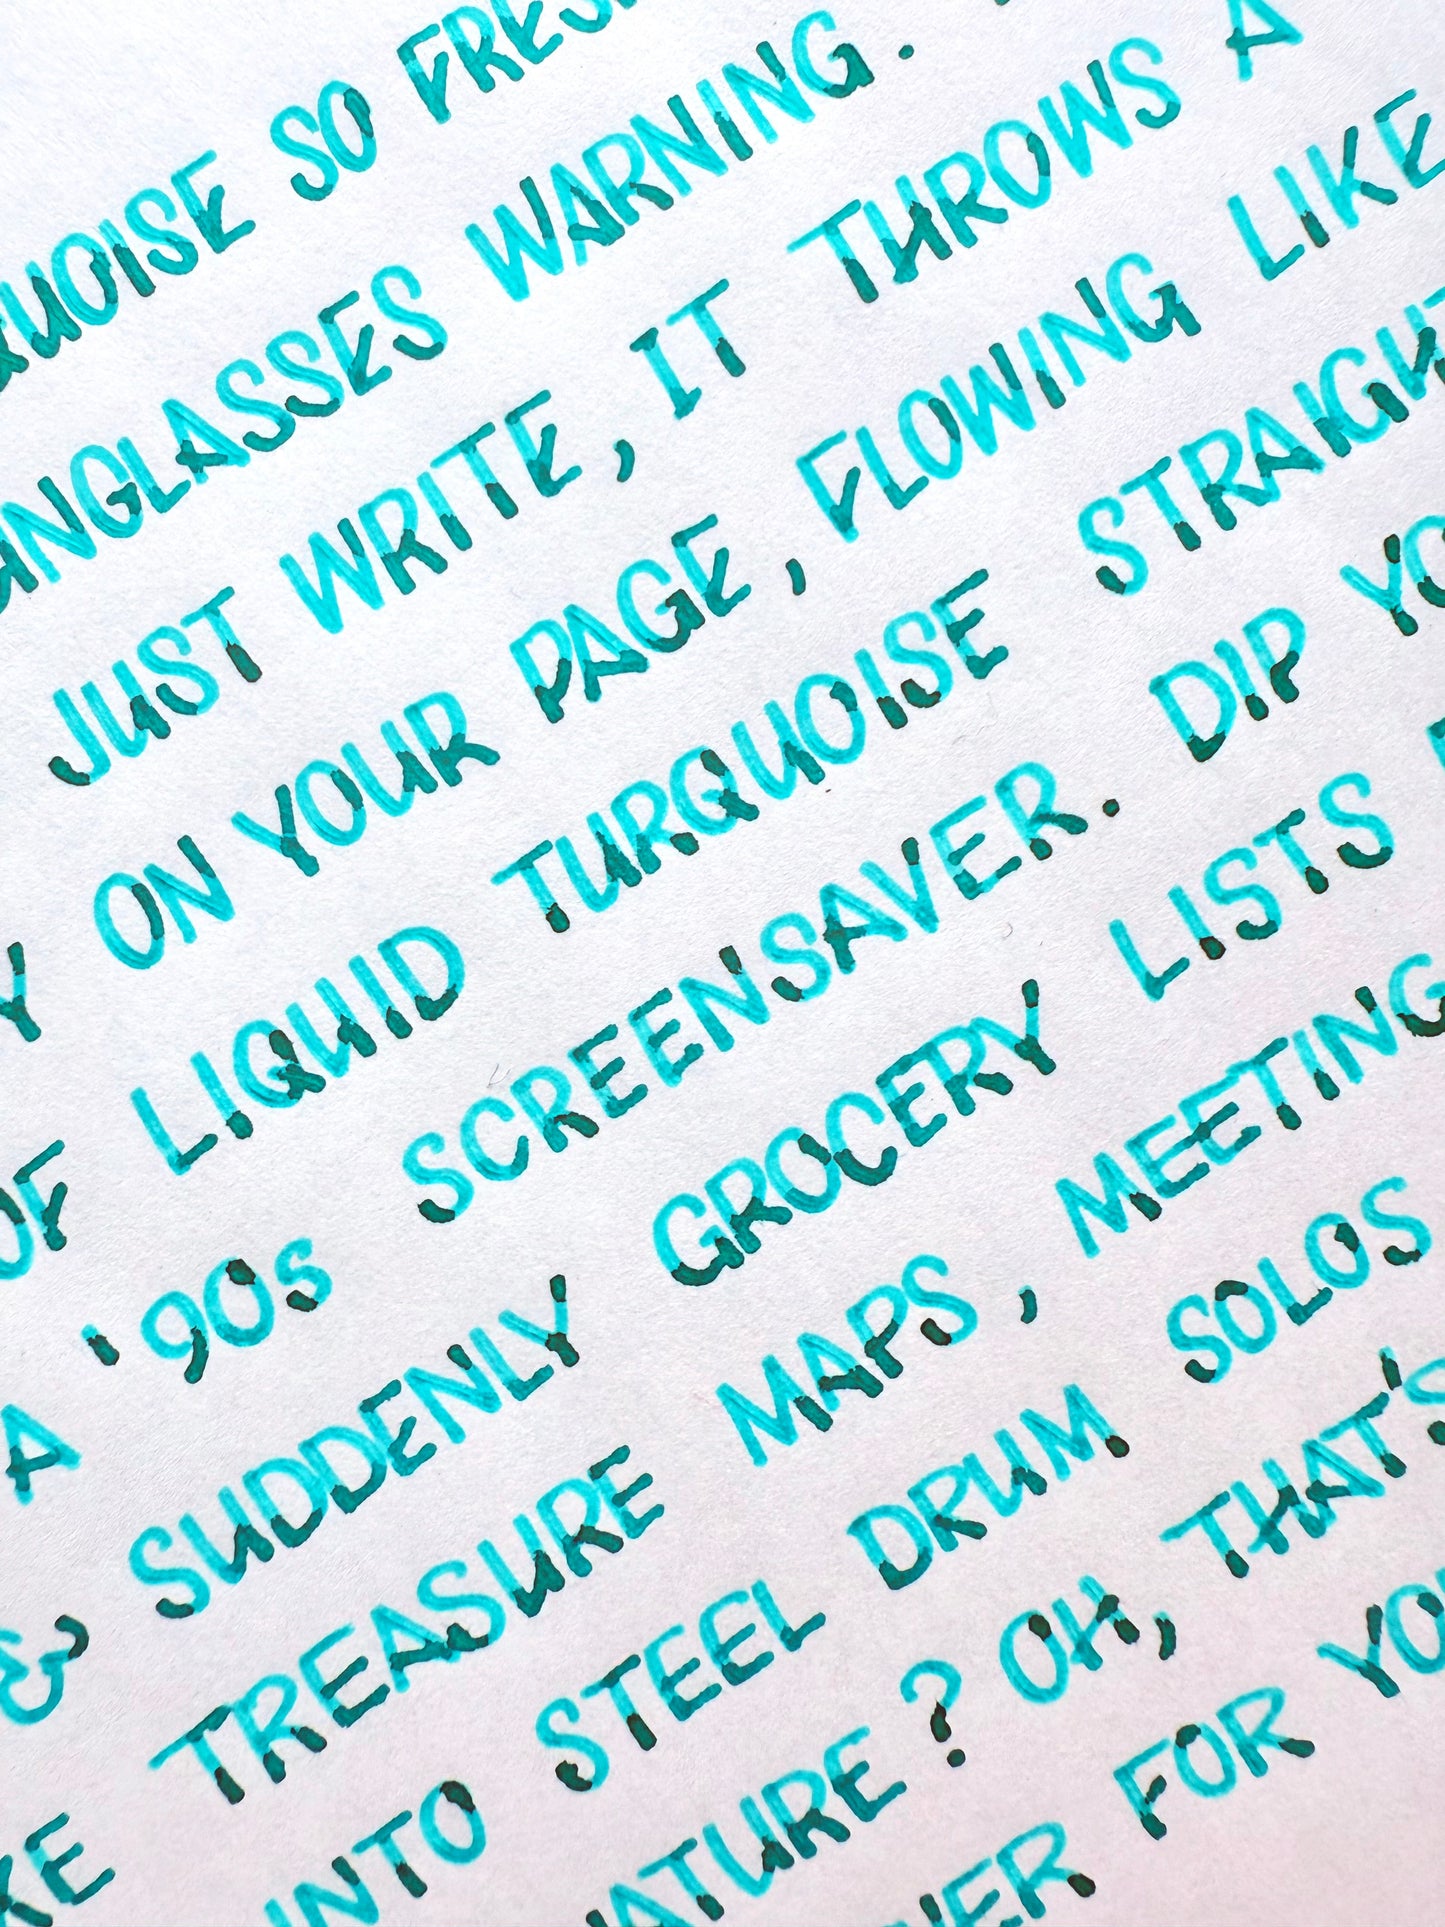 UOISE SO FRES
NGLASSES WARNING.
JUST WRITE, IT THROWS A
Y ON YOUR PAGE, FLOWING LIKE
OF LIQUID TURQUOISE STRAIGHT
A '90s SCREENSAVER. DIP YO
& SUDDENLY GROCERY LISTS
KE TREASURE MAPS, MEETING
INTO STEEL DRUM SOLOS
ATURE? OH, THAT'S
VER FOR YO